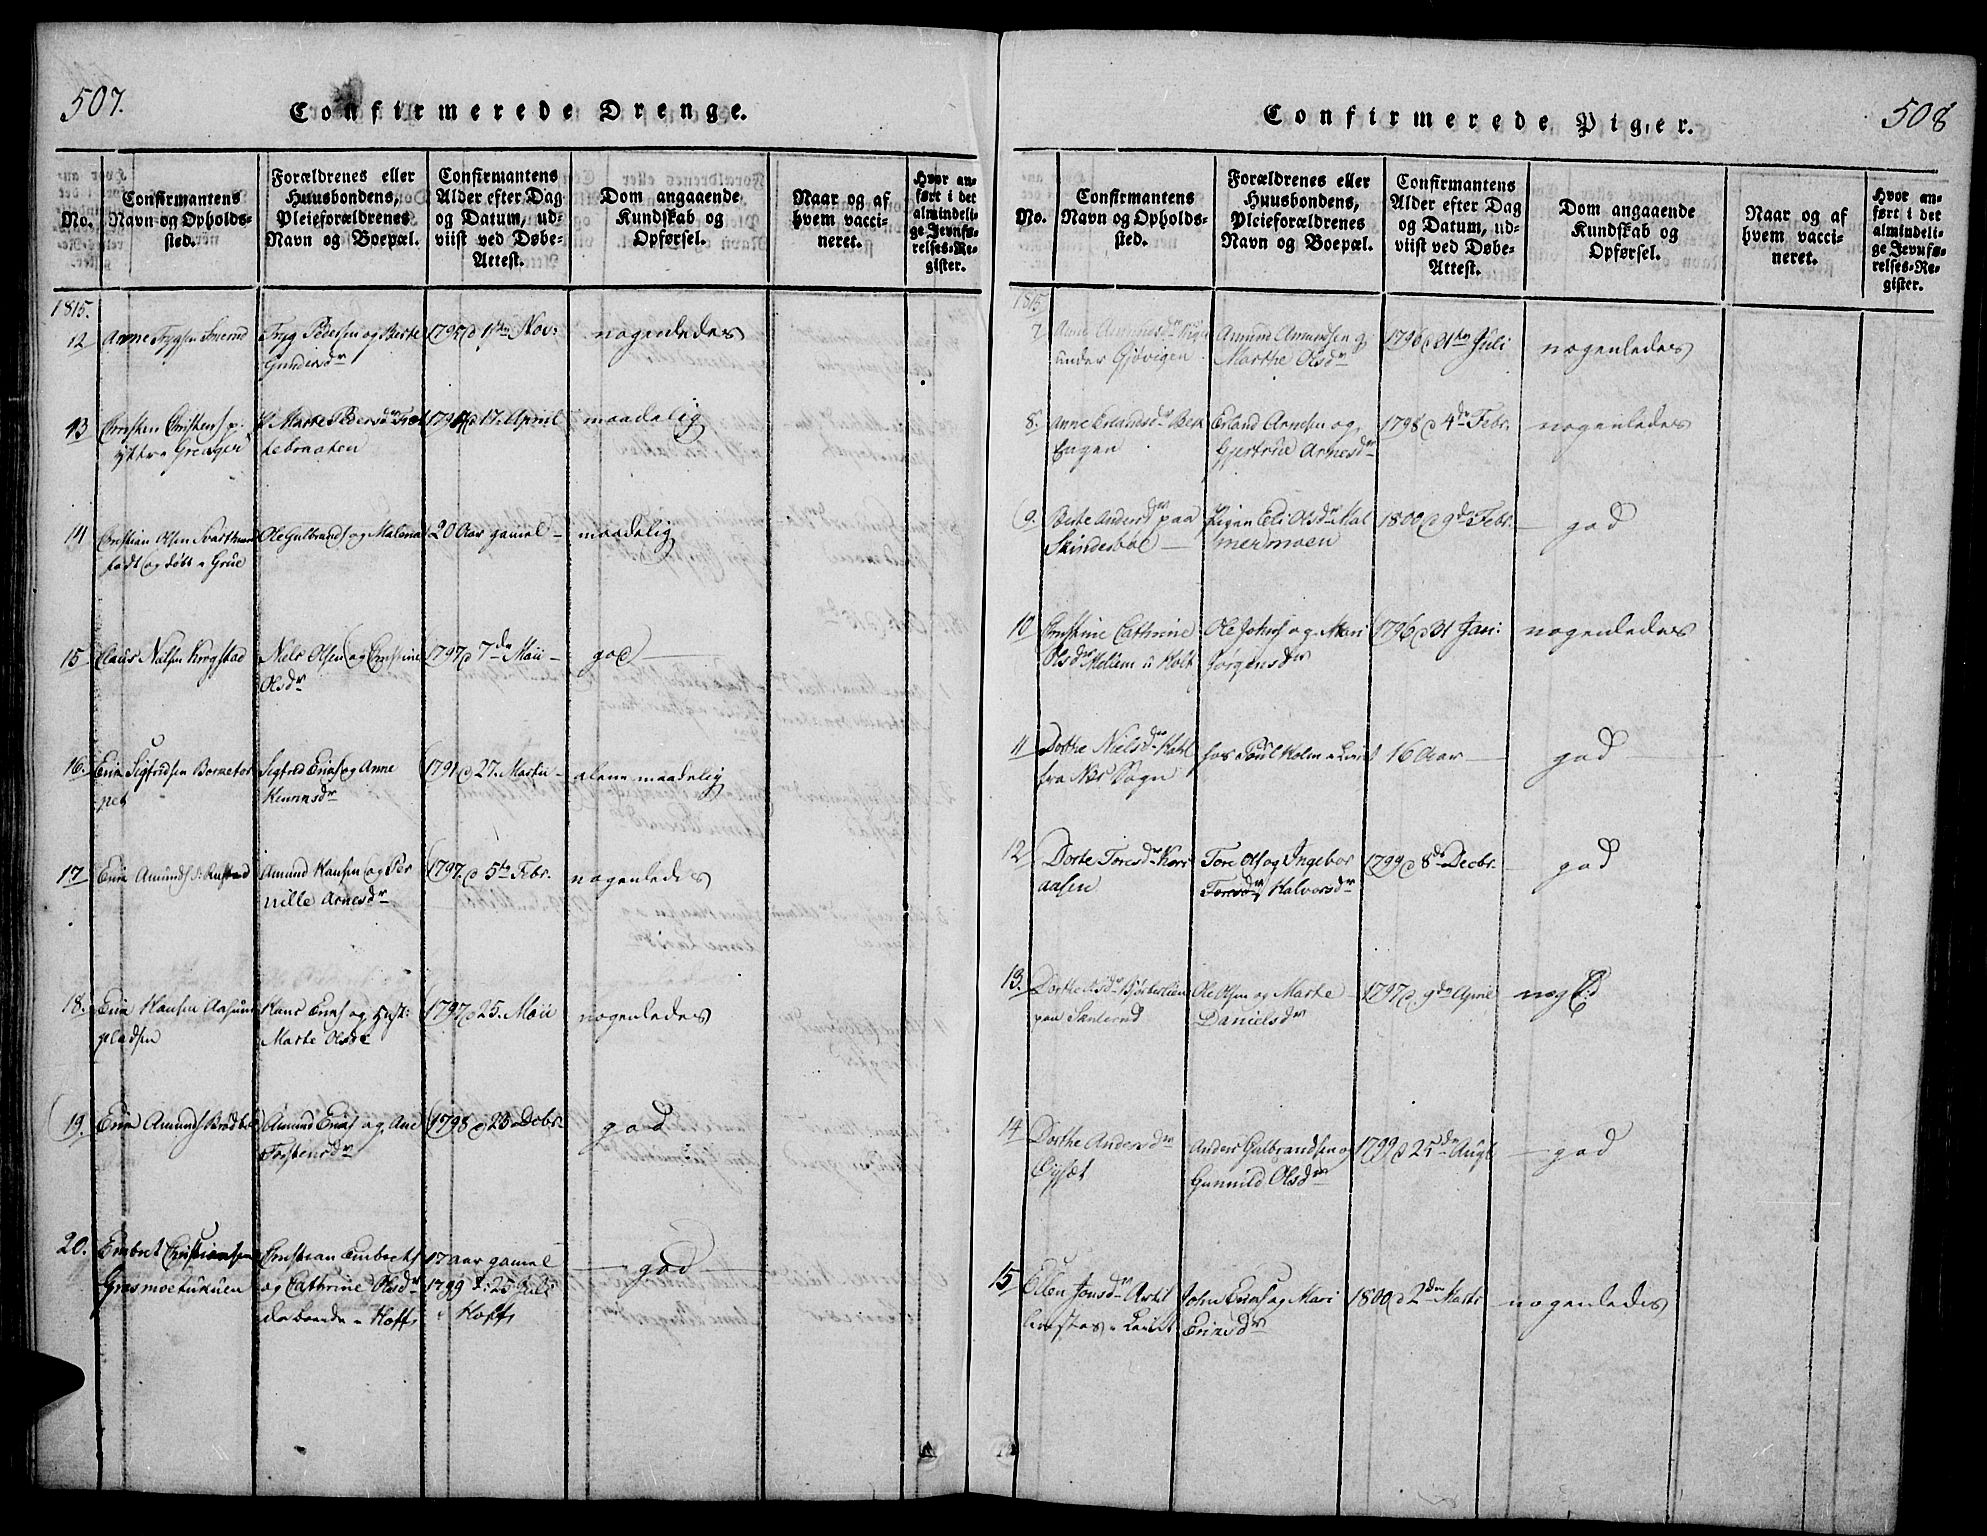 507.
Confirmerede Drenge.
No.
Confirmantens
Navn og Opholds-
sted.
Forældrenes eller
Huusbondens,
Pleieforældrenes
Navn og Boepæl.
Confirmantens
Alder efter Dag
og Datum, ud-
viist ved Døbe-
Attest.
Dom angaaende
Kundskab og
Opførsel.
Naar og af
hvem vacci-
neret.
Hvor an-
ført i det
almindeli-
ge Jevnfø-
relses-Re-
gister.
1815.
12 Arne
Tryg Pedersen og Berte
Gundersdr
1797 d 1ste Nov:
nogenledes
13 Christen Christens p:
yttre
Marte Pedersdr
tebraaten
d 17. April
maadelig
14 Christian Olsen
født og døbt i Grue
Ole Gulbrands og Malena
20 Aar gamel
maadelig
15 Claus Nielsen Krogstad
Niels Olsen og Christine
Olsdr
1797 d 7de Maii
god
16. Eric Sigfredsen Bernetor
pet
Sigfred Erics og Anne
1791 d 27. Martii
alene maadelig
17 Eric Amunds: Rustad
Amund Hansen og Per
nille Arnesdr
1797. d 5te Febr.
nogenledes
18. Eric Hansen Aasum
pladsen
Hans Erics og Hust:
Marte Olsdr
1797 d 25. Maii
nogenledes
19. Eric Amunds
Amund Erics og Ane
Torstensdr
1798 d 23 Debr.
god
20. Embret Christiansen
Christian Embrets
og Cathrine Olsdr
da boende i Hoff
17 aar gamel
1799 d: 25 Juli
i Hoff
god
508
Confirmerede Piger.
No.
Confirmantens
Navn og Opholds-
sted.
Forældrenes eller
Huusbondens,
Pleieforældrenes
Navn og Boepæl.
Confirmantens
Alder efter Dag
og Datum, ud-
viist ved Døbe-
Attest.
Dom angaaende
Kundskab og
Opførsel.
Naar og af
hvem vacci-
neret.
Hvor an-
ført i det
almindeli-
ge Jevnfø-
relses-Re-
gister.
1815
7
under Gjövigen
Amund Amundsen og
Marthe Olsdr
1796 d 21te Juli
nogenledes
8. Anne Erlandsdr Bek
Engen
Erland Arnesen og
Gjertrue Arnesdr
1798 d 4de Febr.
nogenledes
9. Berte Andersdr paa
Skindesböl
Pigen Eli Olsdr Mal
mermoen
1800 d 9de Febr.
god
10 Christine Cathrine
Olsdr Meliem u Holt
Ole Johns og Mari
Jörgensdr
1796 d 31 Jan:
nogenledes
11 Dorthe Nielsdr
fra Nes Sogn
hos Poul Holm
16 Aar
god
12 Dorte Toresdr Kors
aasen
Tore Ols og Ingebor
Toresdr Halvorsdr
1799 d 8de Decbr.
god
13. Dorthe Olsdr
paa
Ole Olsen og Marte
Danielsdr
1797 d 9de April
nog
14 Dorthe Andersdr
Öysæt
Anders Gulbrandsen og
Gunnild Olsdr
1799 d 25de Augt
god
15 Ellen Jonsdr
John Erics og Mari
Ericsdr
1800 d 2den Marti
nogenledes